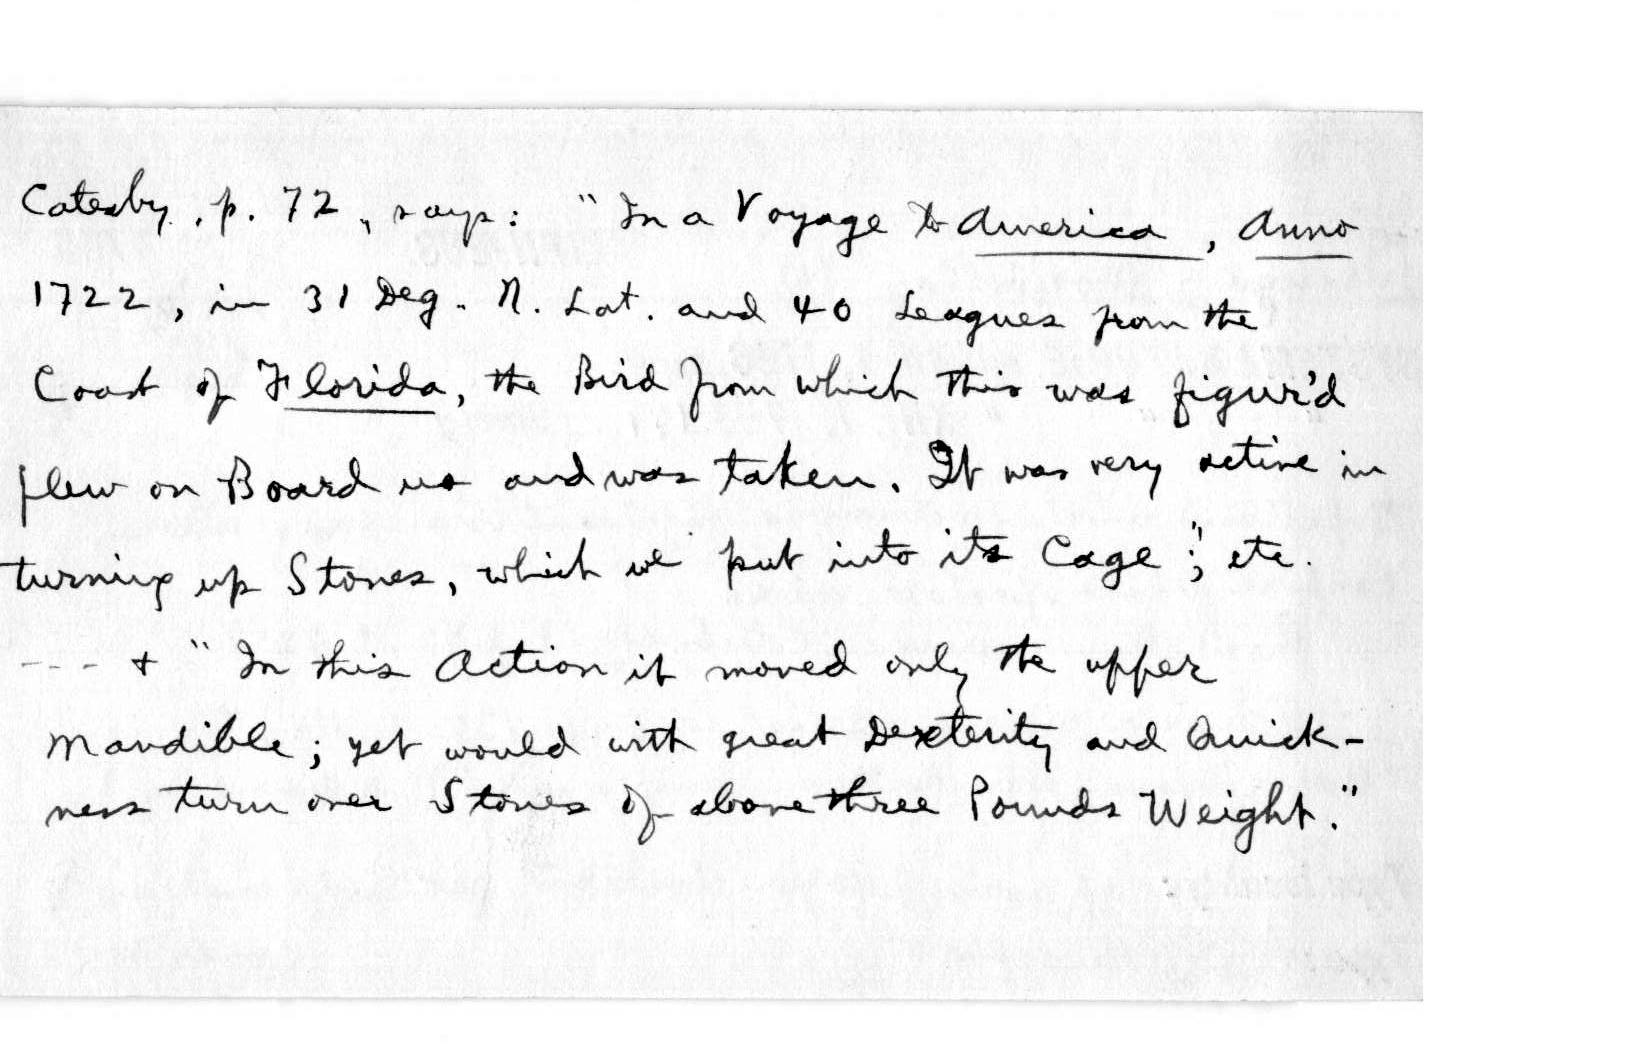 Catesby, p. 72, says: "In a Voyage to America, Anno
1722, in 31 Deg. N. Lat. and 40 Leagues from the
Coast of Florida, the Bird from which this was figur'd
flew on Board us and was taken. It was very active in
turning up Stones, which we put into its Cage;" etc.
--- + "In this Action it moved only the upper
Mandible; yet would with great Dexterity and Quick-
ness turn over Stones of above three Pounds Weight."